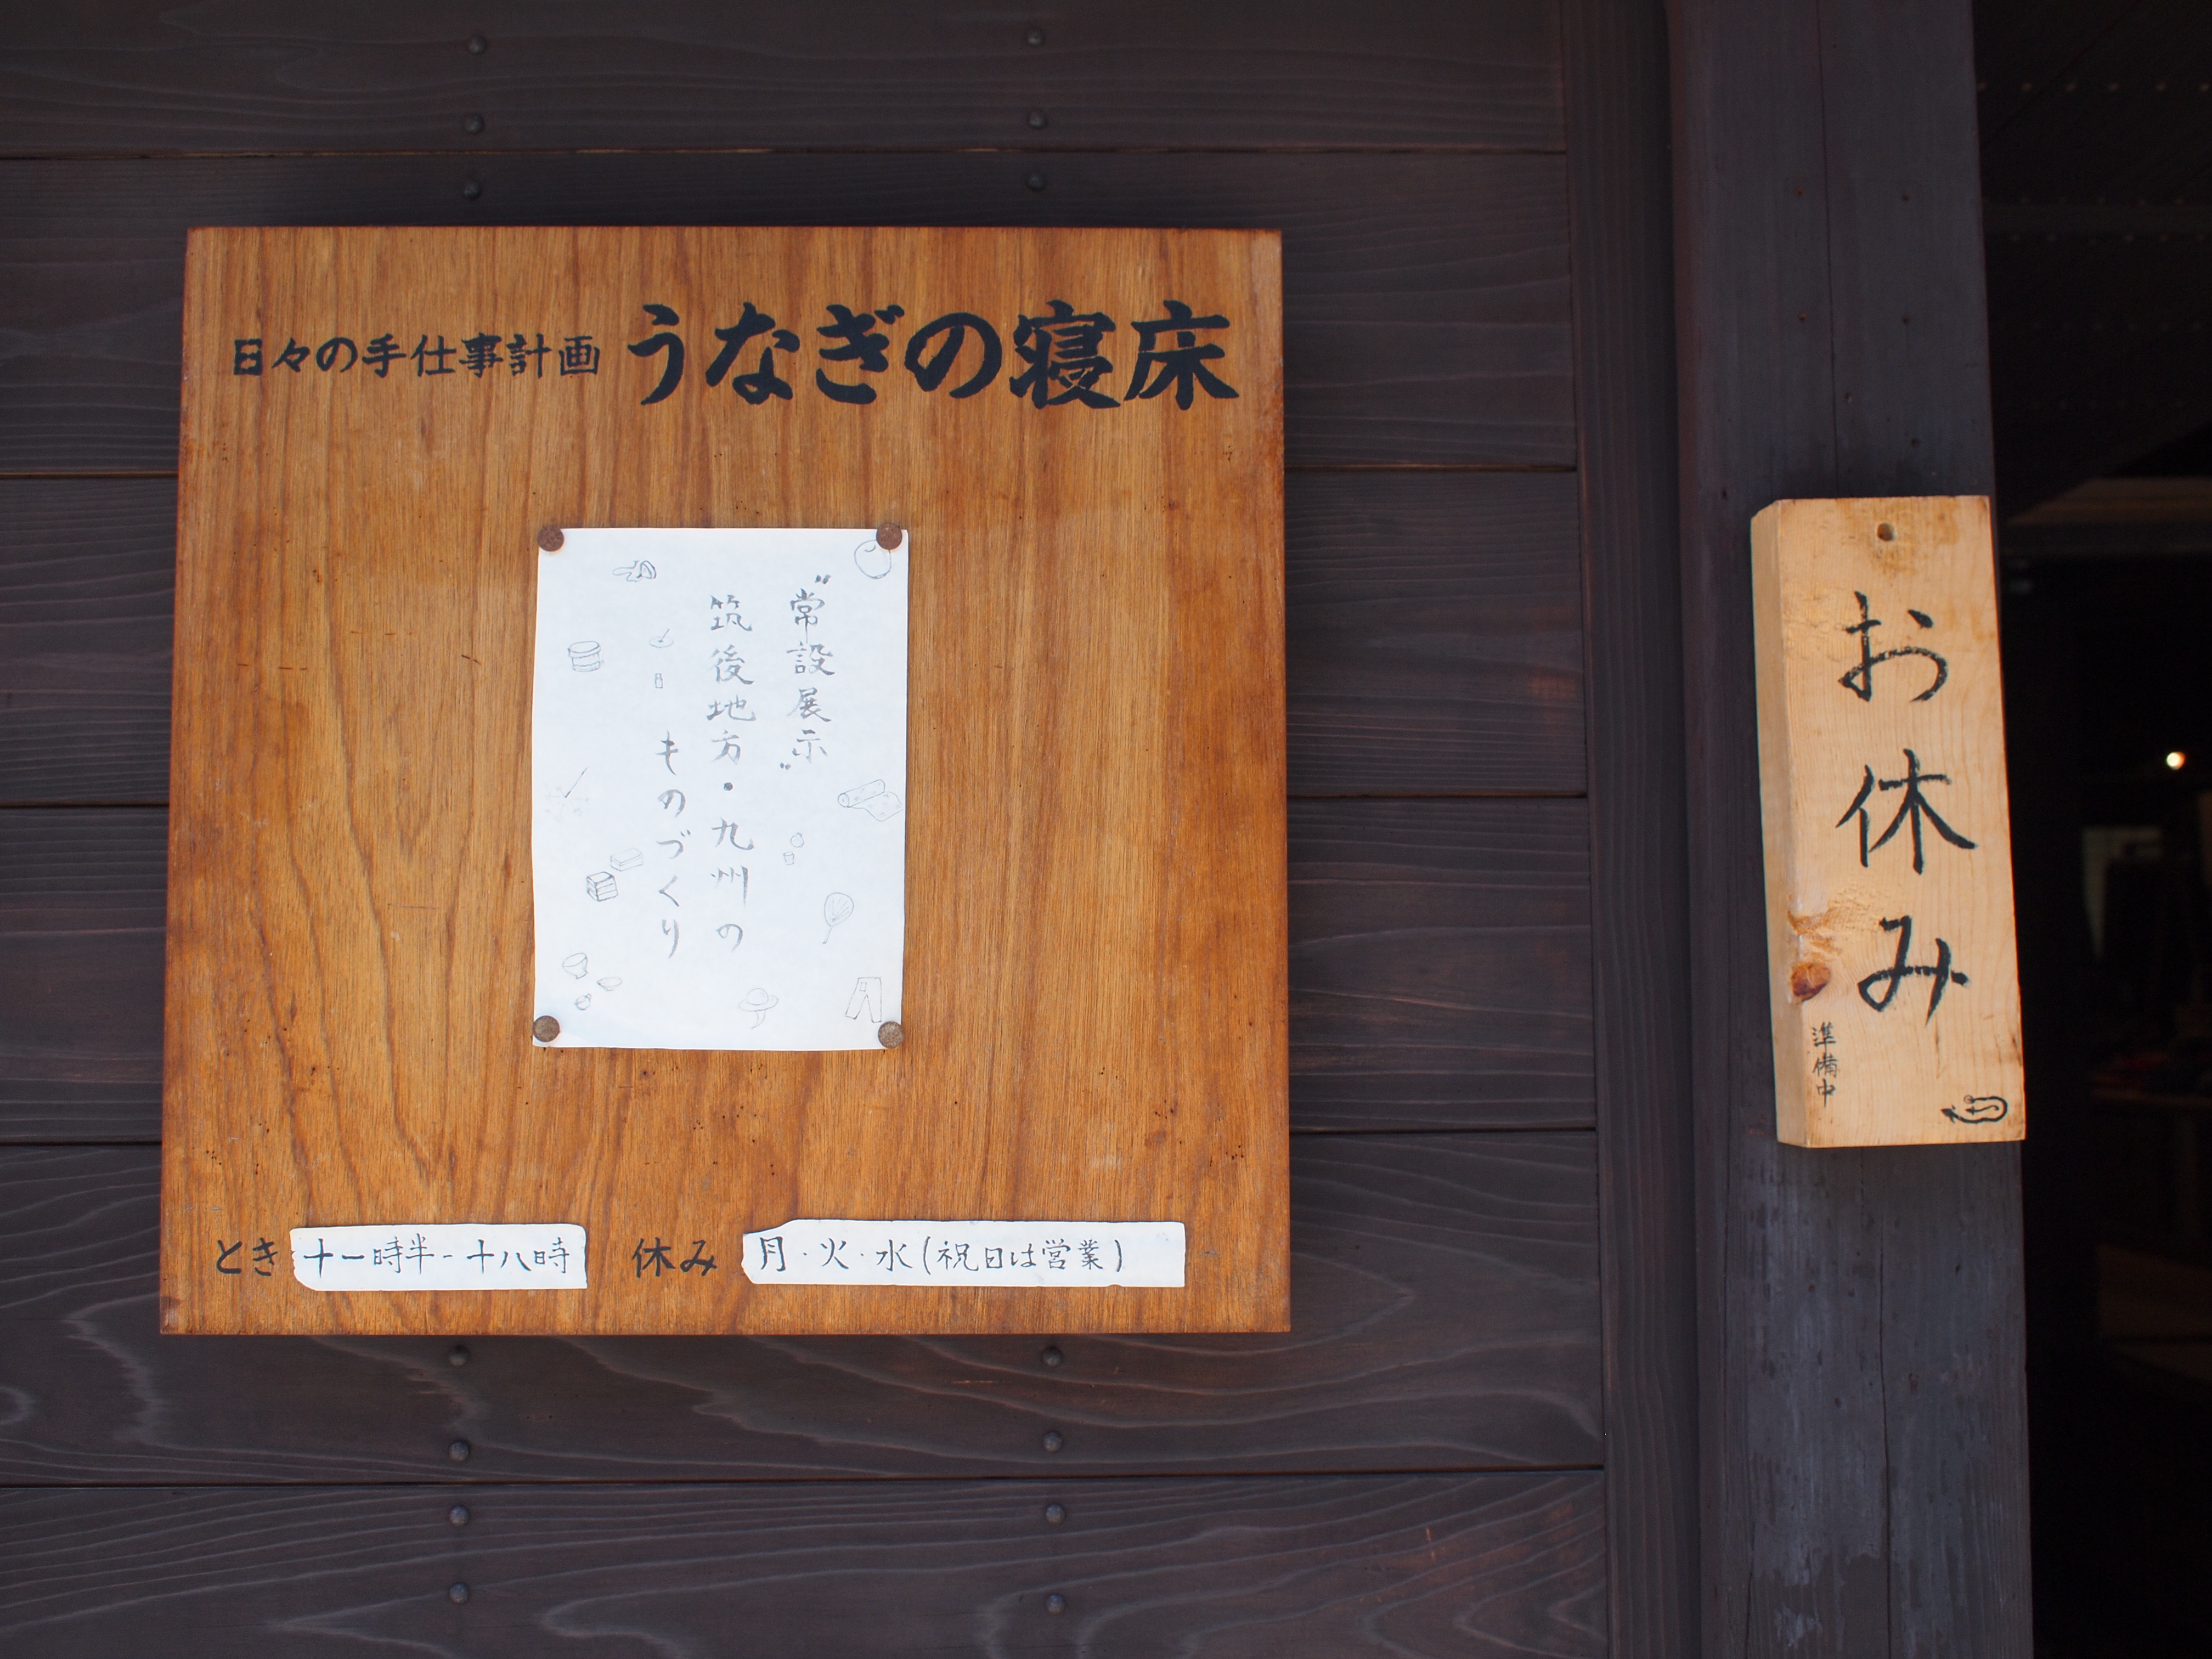 日々の手仕事計画 うなぎの寝床
"常設展示"
筑後地方・九州の
ものづくり
とき 十一時半-十八時 休み 月・火・水(祝日は営業)
お休み
準備中